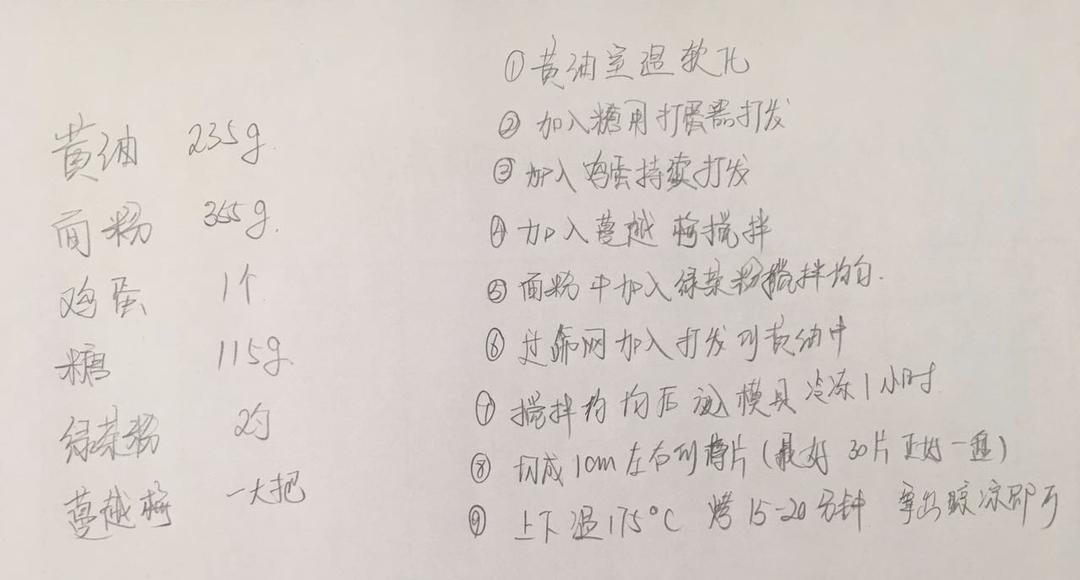 黄油 235g.
面粉 355g.
鸡蛋 1个
糖 115g.
绿茶粉 2勺
蔓越梅 一大把
①黄油室温软化
②加入糖用打蛋器打发
③加入鸡蛋持续打发
④加入蔓越梅搅拌
⑤面粉中加入绿茶粉搅拌均匀.
⑥过筛网加入打发的黄油中
⑦搅拌均匀后 模具冷冻1小时
⑧切成1cm左右的薄片(最好30片正好一盘)
⑨上下温175°C 烤15-20分钟 拿出晾凉即可